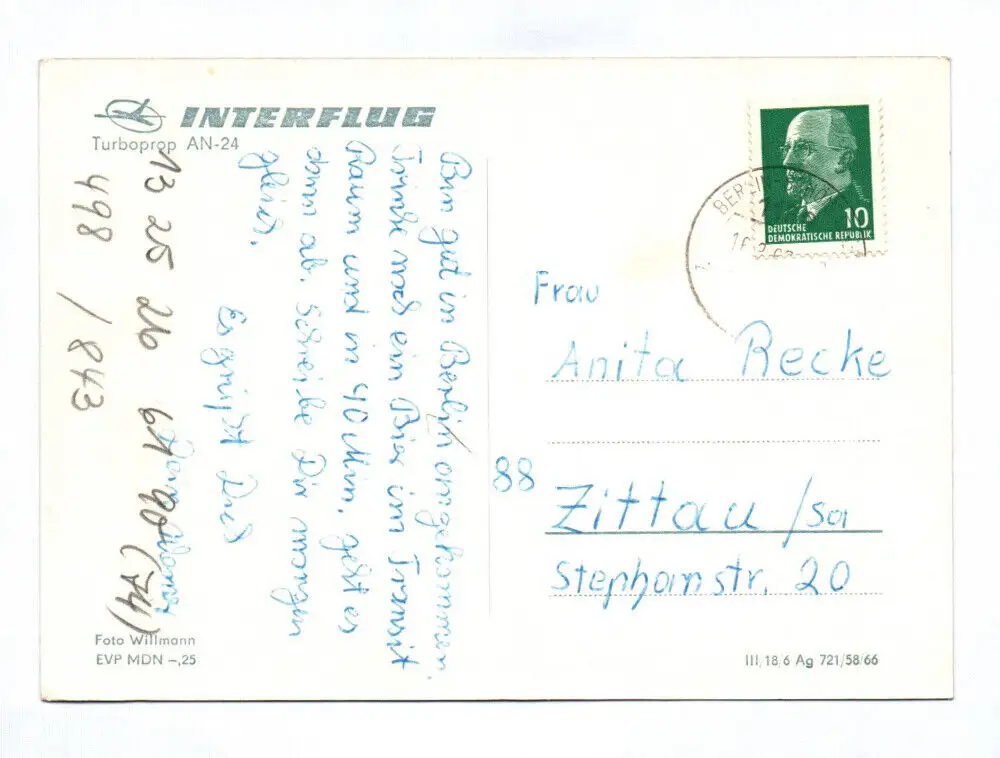 INTERFLUG
Turboprop AN-24
Bin gut in Berlin angekommen.
Trinke noch ein Bier im Transit
Raum und in 40 Min. geht es
dann ab. Schreibe Dir morgen
gleich.
Es grüßt Dich
13 25 26 61 90 (74)
498
/ 843
Foto Willmann
EVP MDN –,25
10
DEUTSCHE
DEMOKRATISCHE REPUBLIK
BERLIN-
Frau
Anita Recke
88
Zittau /Sa
Stephanstr. 20
III/18/6 Ag 721/58/66